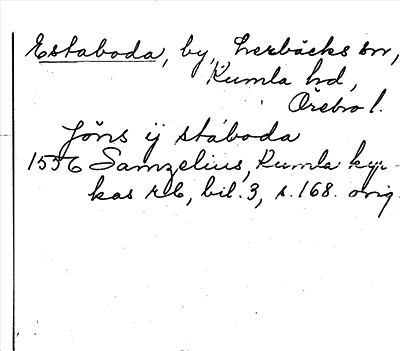 Estaboda, by, Lerbäcks sn,
Kumla hd,
Örebro l.
Jöns ijståboda
1556 Samzelius, Kumla kyr-
kas rb, bil. 3, s. 168. orig.